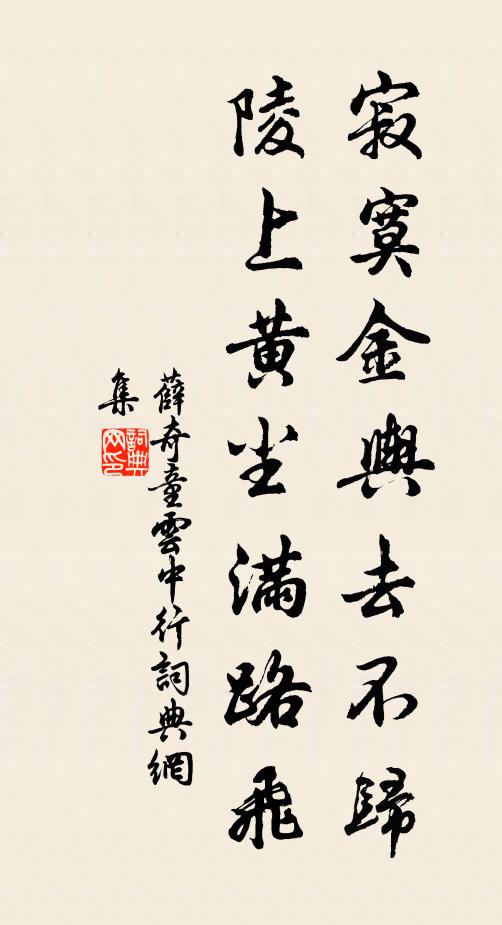 寂寞金輿去不歸
陵上黄尘满路飛
薛奇童雲中行詞典網
集
詞典网印